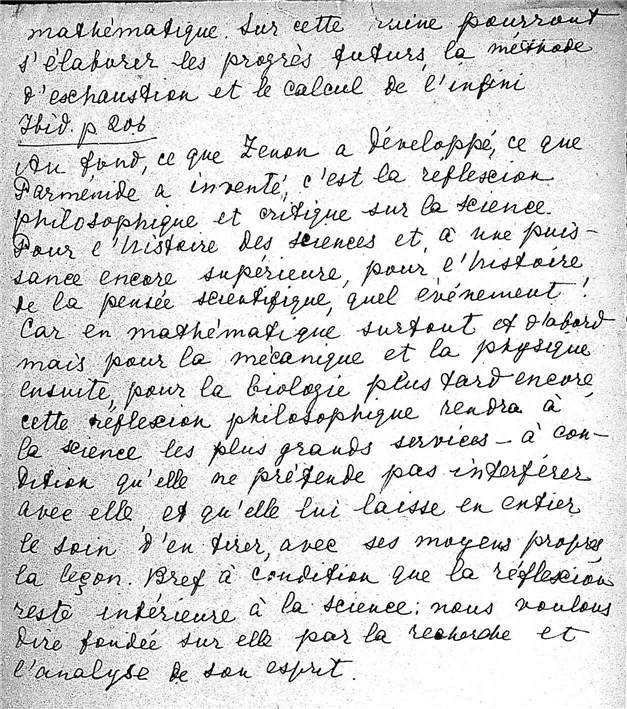 mathématique. Sur cette ruine pourront
s'élaborer les progrès futurs, la méthode
d'exhaustion et le calcul de l'infini
Ibid. p 206
Au fond, ce que Zenon a développé, ce que
Parménide a inventé, c'est la reflexion
philosophique et critique sur la science.
Pour l'histoire des sciences et, à une puis-
sance encore supérieure, pour l'histoire
de la pensée scientifique, quel événement!
Car en mathématique surtout et d'abord
mais pour la mécanique et la physique
ensuite, pour la biologie plus tard encore,
cette réflexion philosophique rendra à
la science les plus grands services - à con-
dition qu'elle ne prétende pas interférer
avec elle, et qu'elle lui laisse en entier
le soin d'en tirer, avec ses moyens propres
la leçon. Bref à condition que la réflexion
reste intérieure à la science: nous voulons
dire fondée sur elle par la recherche et
l'analyse de son esprit.